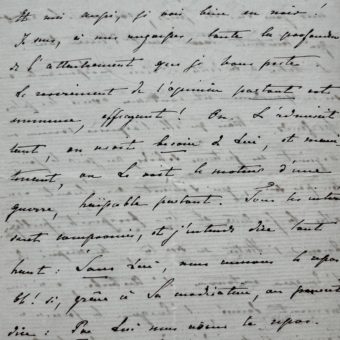 Et moi aussi, je vois bien en noir!
Je sens, à mes angoisses, toute la profondeur
de l'attachement que je vous porte
Le revirement de l'opinion partout est
immense, effrayant! On L'admirait
tant, on avait besoin de Lui, et main
tenant, on Le voit le moteur d'une
guerre, haïssable partout. Tous les intér
sont compromis, et j'entends dire tout
haut: Sans Lui, nous aurions le repos
Oh! si, grâce à Sa modération, on pouvait
dire: Par Lui nous avons le repos.